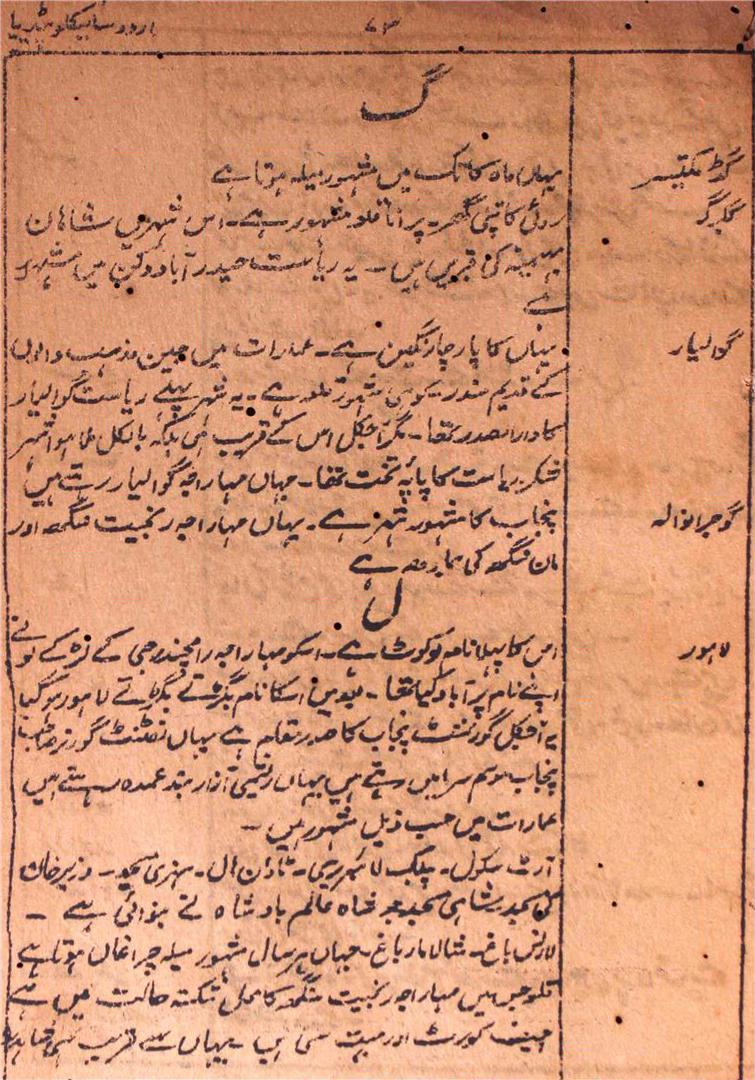 اردو سائیکلوپیڈیا
۷۳
گ
گڑھ مکتیسر
یہاں ماہ کاتک میں مشہور میلہ ہوتا ہے
گلبرگہ
روئی کا تپنی گھر۔ پرانا قلعہ مشہور ہے۔ اس شہر میں شاہان
بہمینہ کی قبریں ہیں۔ یہ ریاست حیدرآباد دکن میں مشہور
ہے
گوالیار
یہاں کا پارچہ رنگین ہے۔ عمارات میں جین مذہب والوں
کے قدیم مندر۔ کوہی مشہور قلعہ ہے۔ یہ شہر پہلے ریاست گوالیار
کا دارالصدر تھا۔ مگر آجکل اس کے قریب ہی بلکہ بالکل ملا ہوا شہر
لشکر ریاست کا پایہ تخت تھا۔ جہاں مہاراجہ گوالیار رہتے ہیں
گوجرانوالہ
پنجاب کا مشہور شہر ہے۔ یہاں مہاراجہ رنجیت سنگھ اور
مان سنگھ کی سمادھ ہے
ل
لاہور
اس کا پہلا نام لوکوٹ ہے۔ اسکو مہاراجہ رامچندرجی کے لڑکے لو نے
اپنے نام پر آباد کیا تھا۔ بعد میں اسکا نام بگڑتے بگڑتے لاہور ہو گیا
یہ آجکل گورنمنٹ پنجاب کا صدر مقام ہے یہاں لفٹنٹ گورنر صاحب
پنجاب موسم سرما میں رہتے ہیں یہاں ریشمی آزاربند عمدہ رہتے ہیں
عمارات میں حسب ذیل مشہور ہیں۔
آرٹ سکول۔ پبلک لائبریری۔ ٹاؤن ہال۔ سنہری مسجد۔ وزیر خان
کی مسجد۔ شاہی مسجد جو شاہ عالم بادشاہ نے بنوائی ہے۔
لارنس باغ۔ شالامار باغ۔ جہاں ہر سال مشہور میلہ چراغاں ہوتا ہے
قلعہ جس میں مہاراجہ رنجیت سنگھ کا محل شکستہ حالت میں ہے
چیف کورٹ اور بہت سی یہاں سے قریب ہی